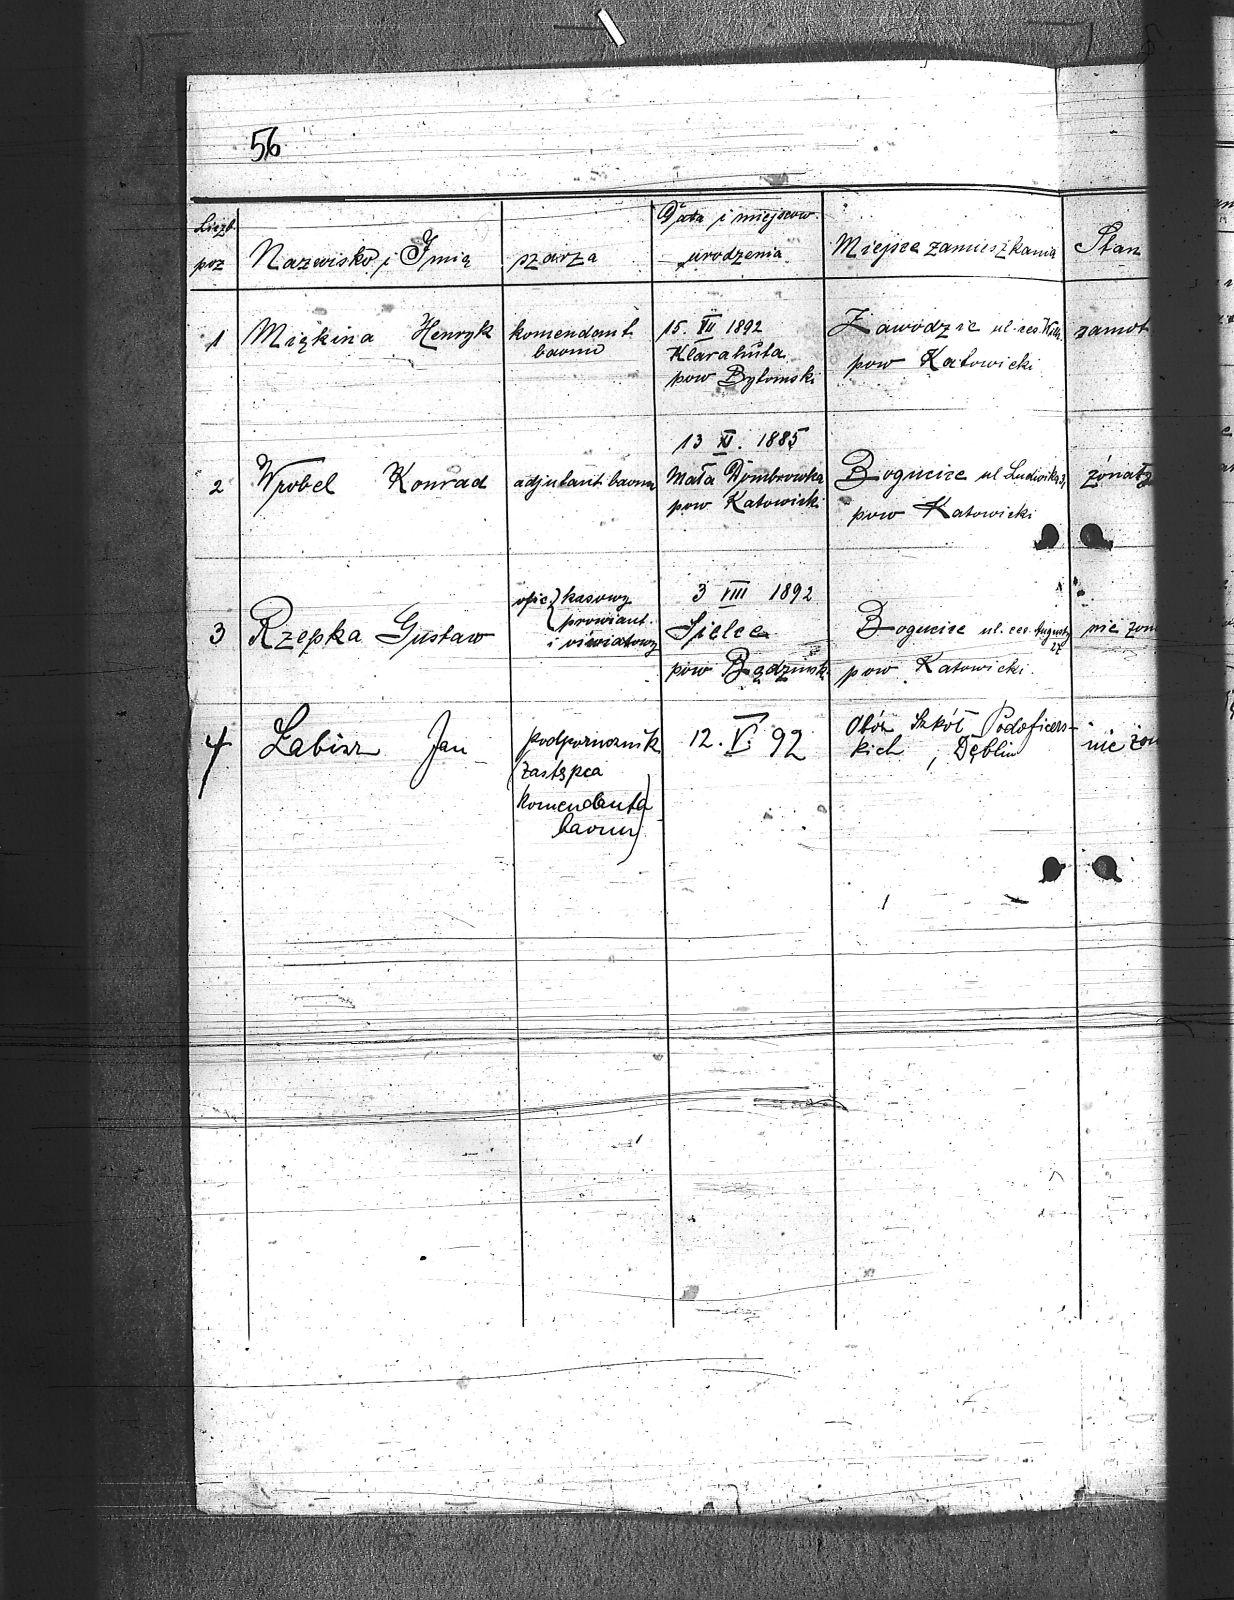 56
Liczb.
poz
Nazwisko i Imię
szarża
Data i miejscow.
urodzenia
Miejsce zamieszkania
Stan
1 Miękina Henryk
komendant
baonu
15. VII 1892
Klarahuta
pow Bytomski
Zawodzie ul. ces. Wilh.
pow Katowicki
zamęż
2 Wrobel Konrad
adjutant baonu
13 XI. 1885
Mała Dombrowka
pow Katowicki
Bogucice ul Ludwika
pow Katowicki
żonaty
3 Rzepka Gustaw
ofic. kasowy
prowiant.
i oświatowy
3 VIII 1892
Sielce
pow Będzinsk.
Bogucice ul. ces. Augusty
27
pow Katowicki
nie żon
4 Labisz Jan
podporucznik
(zastępca
komendanta
baonu)
12. V. 92
Obóz Szkół Podoficers-
kich, Dęblin
nie żon